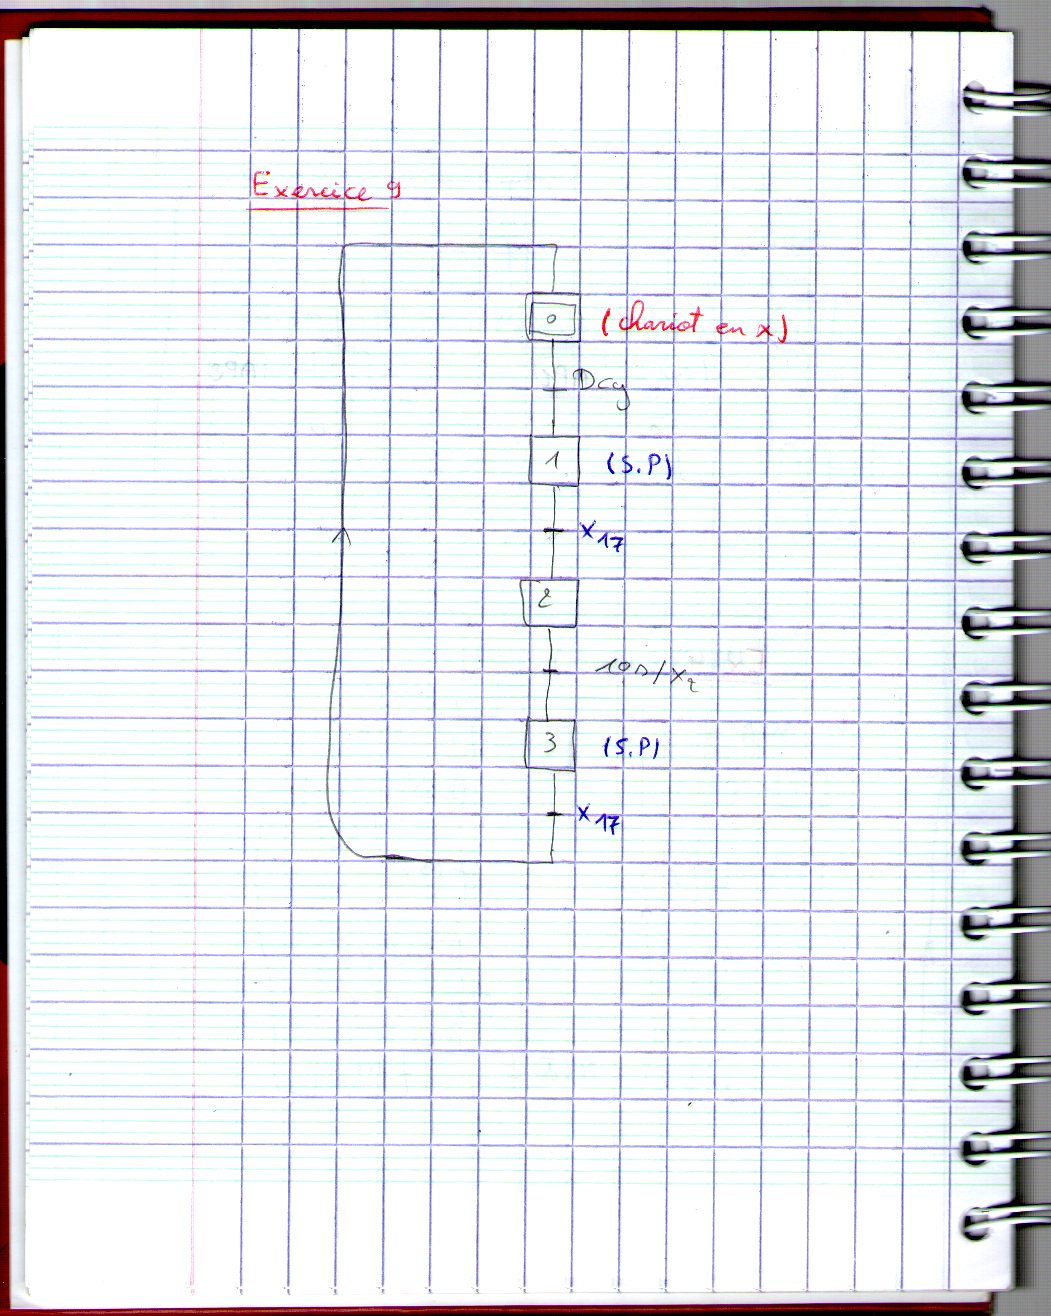 Exercice 9
0 (chariot en x)
Dcy
1 (S.P)
X17
2
10s/X2
3 (S.P)
X17